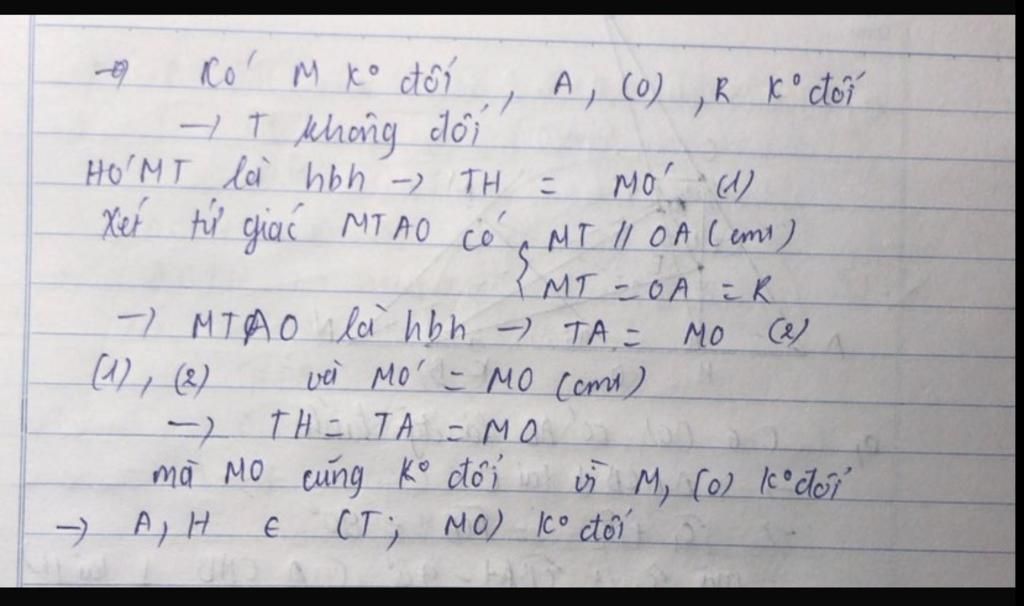 → Có M k° đổi, A, (O), R k° đổi
→ T không đổi
HO'MT là hbh → TH = MO' (1)
Xét tứ giác MTAO có { MT // OA (cmt)
MT = OA = R
→ MTAO là hbh → TA = MO (2)
(1), (2) và MO' = MO (cmt)
→ TH = TA = MO
mà MO cũng k° đổi vì M, (O) k° đổi
→ A, H ∈ (T; MO) k° đổi